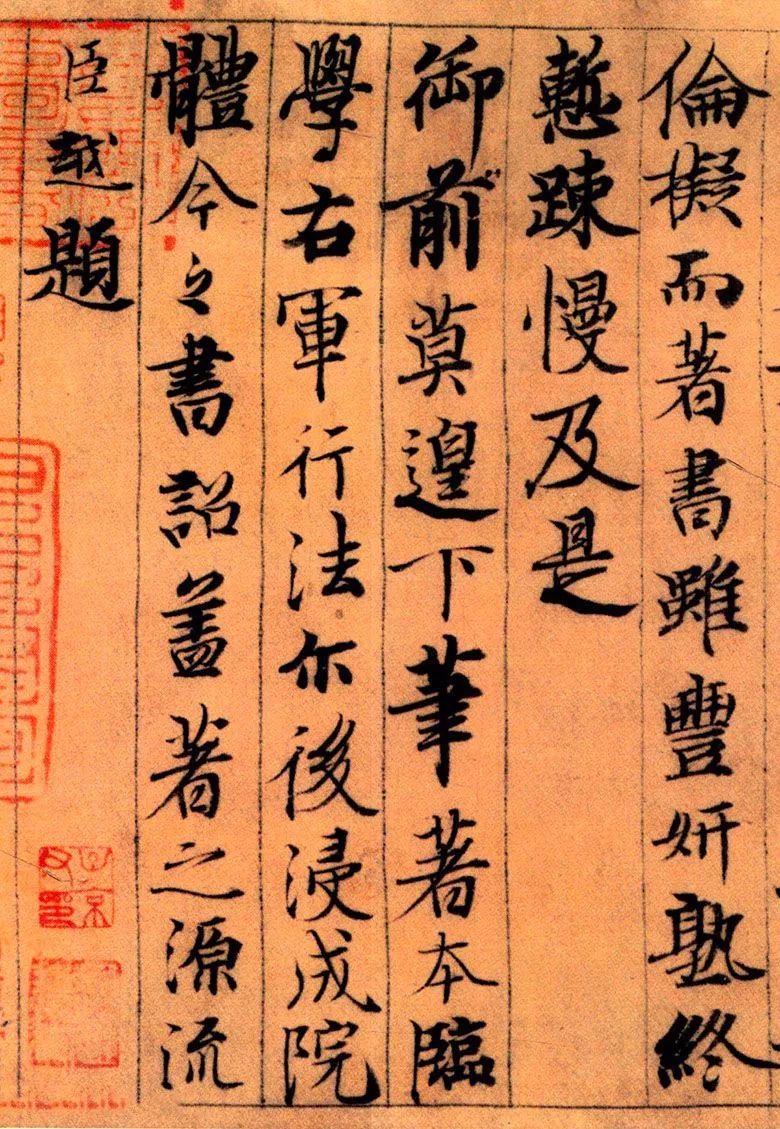 倫擬而著書雖豐妍熟終
慙踈慢及是
御前莫遑下筆著本臨
學右軍行法尒後浸成院
體今之書詔葢著之源流
臣越題